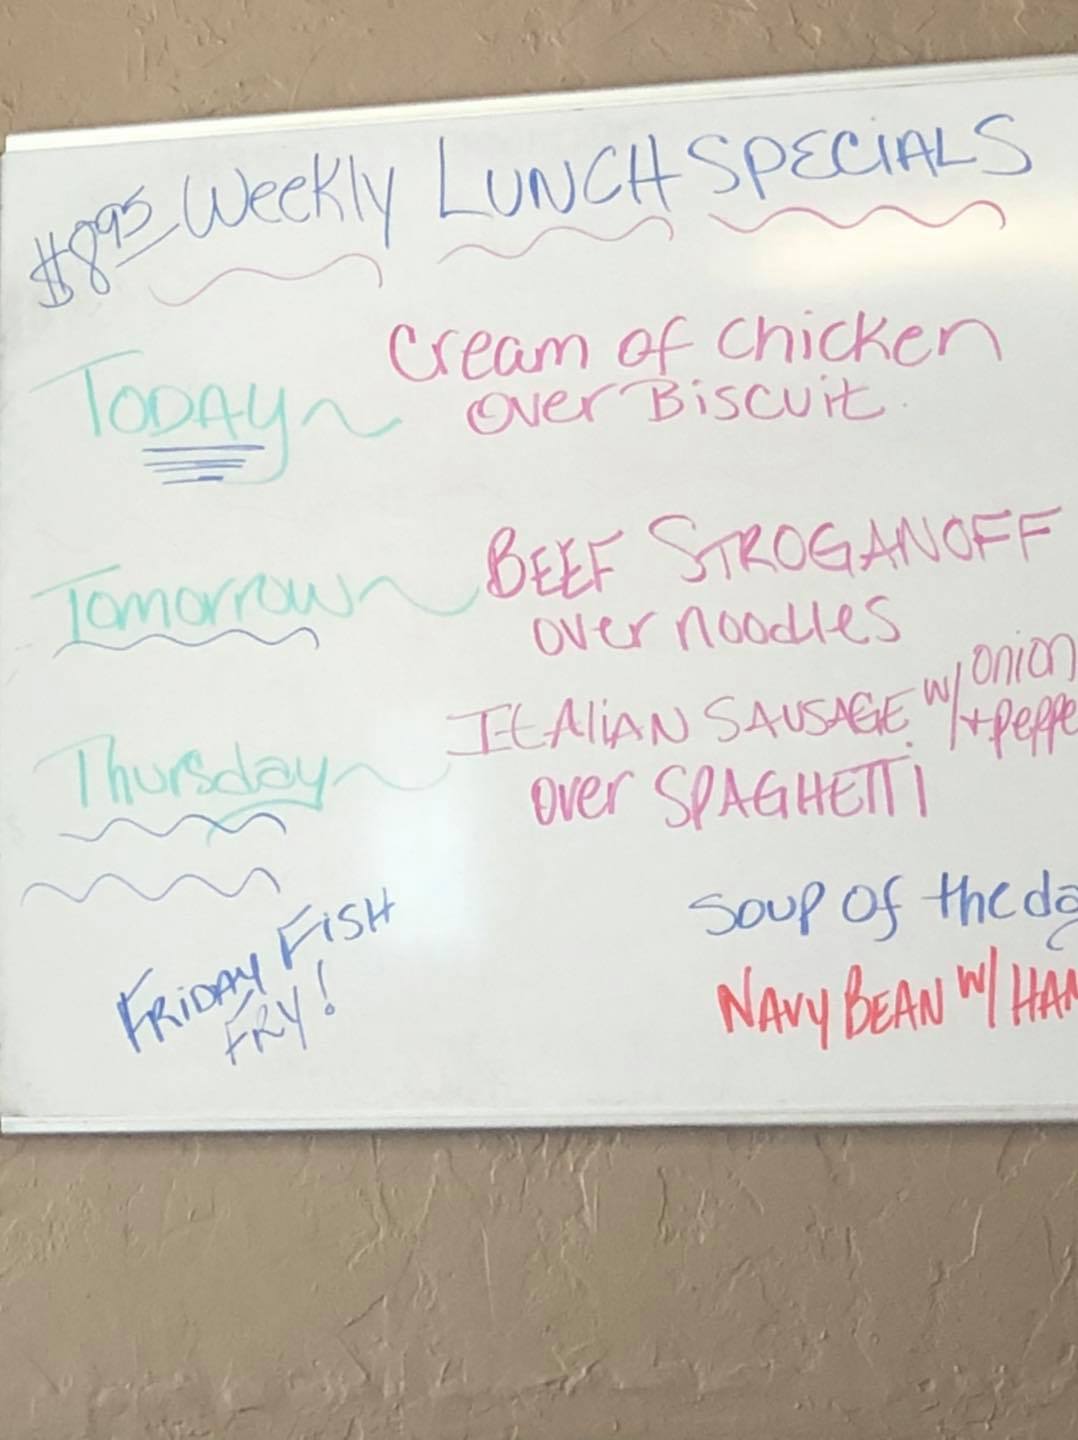 $8.95 Weekly LUNCH SPECIALS
TODAY~ Cream of chicken
over Biscuit
Tomorrow~ BEEF STROGANOFF
over noodles
Thursday~ ITALIAN SAUSAGE w/ onion
+ Peppe
over SPAGHETTI
FRIDAY FISH
FRY!
Soup of the da
NAVY BEAN W/ HAM